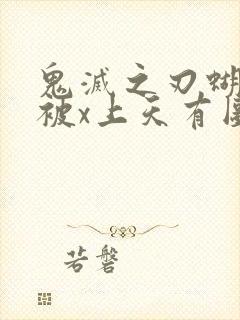 鬼滅之刃蝴
被x上天有
若磐